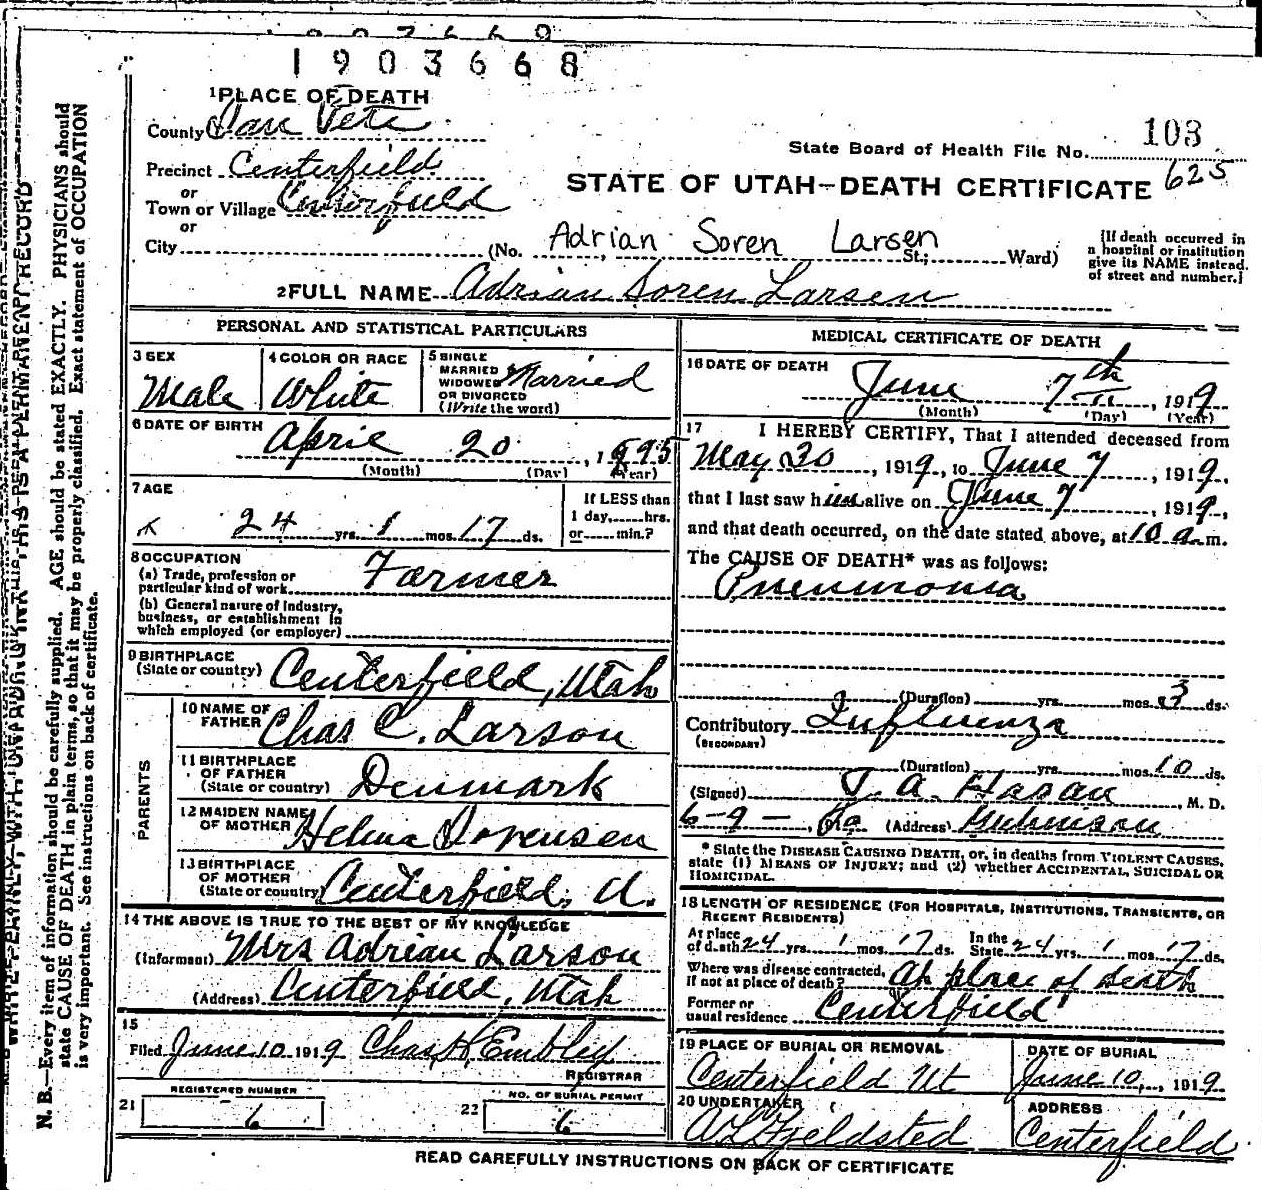 1903668
1 PLACE OF DEATH
County San Pete
State Board of Health File No. 103
625
Precinct Centerfield
or
Town or Village Centerfield
or
STATE OF UTAH—DEATH CERTIFICATE
City (No. Adrian Soren Larsen St.; Ward)
[If death occurred in
a hospital or institution
give its NAME instead.
of street and number.]
2 FULL NAME Adrian Soren Larsen
PERSONAL AND STATISTICAL PARTICULARS
3 SEX
Male
4 COLOR OR RACE
White
5 SINGLE
MARRIED
WIDOWED
OR DIVORCED
(Write the word)
Married
6 DATE OF BIRTH
April 20, 1895
(Month) (Day) (Year)
7 AGE
24 yrs. 1 mos. 17 ds.
If LESS than
1 day, hrs.
or min.?
8 OCCUPATION
(a) Trade, profession or
particular kind of work Farmer
(b) General nature of Industry,
business, or establishment in
which employed (or employer)
9 BIRTHPLACE
(State or country) Centerfield, Utah
PARENTS
10 NAME OF
FATHER Chas C. Larson
11 BIRTHPLACE
OF FATHER
(State or country) Denmark
12 MAIDEN NAME
OF MOTHER Helma Sorensen
13 BIRTHPLACE
OF MOTHER
(State or country) Centerfield, U.
14 THE ABOVE IS TRUE TO THE BEST OF MY KNOWLEDGE
(Informant) Mrs Adrian Larson
(Address) Centerfield, Utah
15
Filed June 10 1919 Chas H Embled
REGISTRAR
REGISTERED NUMBER
21 6
NO. OF BURIAL PERMIT
22 6
MEDICAL CERTIFICATE OF DEATH
16 DATE OF DEATH
June 7th, 1919
(Month) (Day) (Year)
17 I HEREBY CERTIFY, That I attended deceased from
May 30, 1919, to June 7, 1919,
that I last saw him alive on June 7, 1919,
and that death occurred, on the date stated above, at 10 a.m.
The CAUSE OF DEATH* was as follows:
Pneumonia
(Duration) yrs. mos. 3 ds.
Contributory Influenza
(SECONDARY)
(Duration) yrs. mos. 10 ds.
(Signed) T. A. Hasan, M. D.
6-9- , 19 (Address) Gunnison
* State the DISEASE CAUSING DEATH, or, in deaths from VIOLENT CAUSES,
state (1) MEANS OF INJURY; and (2) whether ACCIDENTAL, SUICIDAL OR
HOMICIDAL.
18 LENGTH OF RESIDENCE (FOR HOSPITALS, INSTITUTIONS, TRANSIENTS, OR
RECENT RESIDENTS)
At place
of death 24 yrs. 1 mos. 17 ds.
In the
State 24 yrs. 1 mos. 17 ds.
Where was disease contracted,
if not at place of death? At place of death
Former or
usual residence Centerfield
19 PLACE OF BURIAL OR REMOVAL
Centerfield Ut
DATE OF BURIAL
June 10, 1919
20 UNDERTAKER
A L Fjeldsted
ADDRESS
Centerfield
READ CAREFULLY INSTRUCTIONS ON BACK OF CERTIFICATE
WRITE PLAINLY, WITH UNFADING INK—THIS IS A PERMANENT RECORD
N. B.—Every item of information should be carefully supplied. AGE should be stated EXACTLY. PHYSICIANS should
state CAUSE OF DEATH in plain terms, so that it may be properly classified. Exact statement of OCCUPATION
is very important. See instructions on back of certificate.